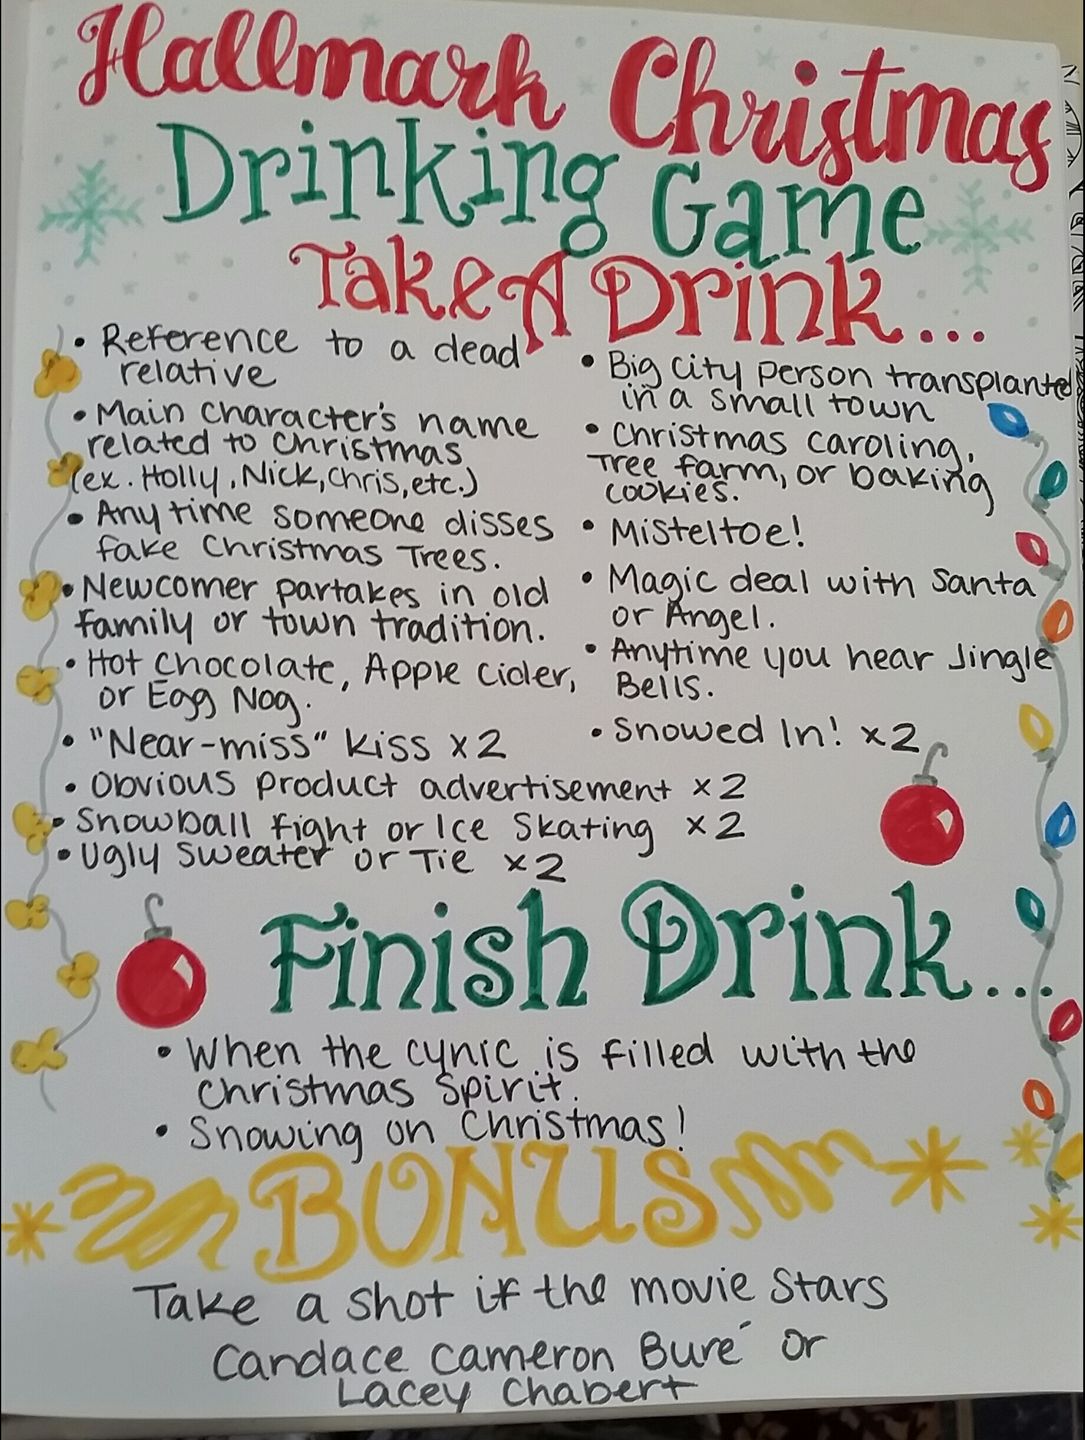 Hallmark Christmas
Drinking Game
Take A Drink...
• Reference to a dead
relative
• Main character's name
related to Christmas
(ex. Holly, Nick, Chris, etc.)
• Any time someone disses
fake Christmas Trees.
• Newcomer partakes in old
family or town tradition.
• Hot Chocolate, Apple Cider,
or Egg Nog.
• "Near-miss" kiss x2
• Obvious product advertisement x2
• Snowball fight or Ice Skating x2
• Ugly Sweater or Tie x2
• Big city person transplanted
in a small town
• Christmas caroling,
Tree farm, or baking
cookies.
• Misteltoe!
• Magic deal with Santa
or Angel.
• Anytime you hear Jingle
Bells.
• Snowed In! x2
Finish Drink...
• When the cynic is filled with the
Christmas Spirit.
• Snowing on Christmas!
BONUS
Take a shot if the movie stars
Candace Cameron Buré or
Lacey Chabert